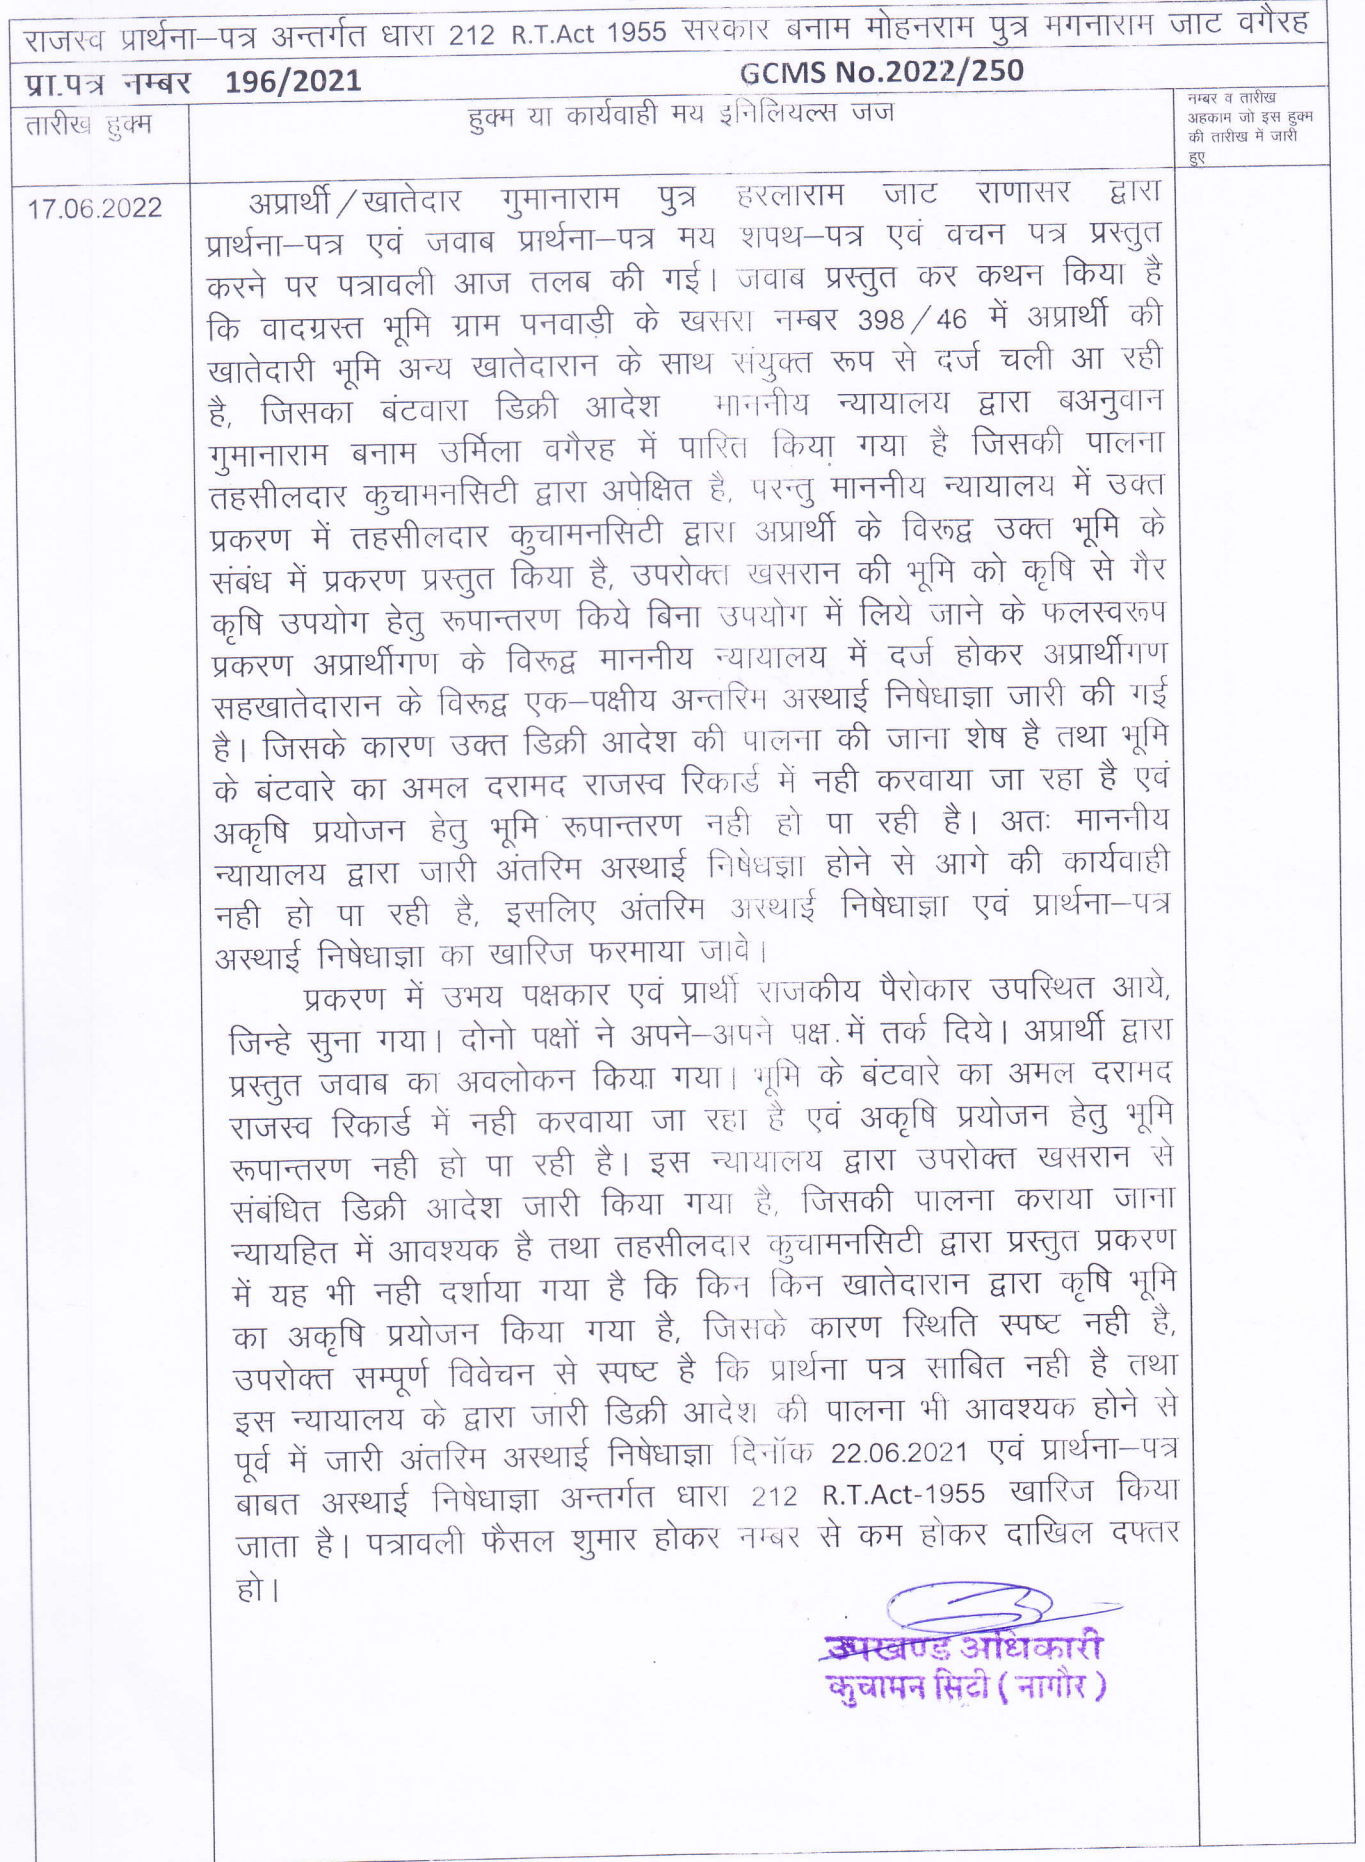 राजस्व प्रार्थना–पत्र अन्तर्गत धारा 212 R.T.Act 1955 सरकार बनाम मोहनराम पुत्र मगनाराम जाट वगैरह
प्रा.पत्र नम्बर 196/2021 GCMS No.2022/250
तारीख हुक्म
हुक्म या कार्यवाही मय इनिलियल्स जज
नम्बर व तारीख
अहकाम जो इस हुक्म
की तारीख में जारी
हुए
17.06.2022
अप्रार्थी/खातेदार गुमानाराम पुत्र हरलाराम जाट राणासर द्वारा
प्रार्थना–पत्र एवं जवाब प्रार्थना–पत्र मय शपथ–पत्र एवं वचन पत्र प्रस्तुत
करने पर पत्रावली आज तलब की गई। जवाब प्रस्तुत कर कथन किया है
कि वादग्रस्त भूमि ग्राम पनवाड़ी के खसरा नम्बर 398/46 में अप्रार्थी की
खातेदारी भूमि अन्य खातेदारान के साथ संयुक्त रूप से दर्ज चली आ रही
है, जिसका बंटवारा डिक्री आदेश माननीय न्यायालय द्वारा बअनुवान
गुमानाराम बनाम उर्मिला वगैरह में पारित किया गया है जिसकी पालना
तहसीलदार कुचामनसिटी द्वारा अपेक्षित है, परन्तु माननीय न्यायालय में उक्त
प्रकरण में तहसीलदार कुचामनसिटी द्वारा अप्रार्थी के विरूद्व उक्त भूमि के
संबंध में प्रकरण प्रस्तुत किया है, उपरोक्त खसरान की भूमि को कृषि से गैर
कृषि उपयोग हेतु रूपान्तरण किये बिना उपयोग में लिये जाने के फलस्वरूप
प्रकरण अप्रार्थीगण के विरूद्व माननीय न्यायालय में दर्ज होकर अप्रार्थीगण
सहखातेदारान के विरूद्व एक–पक्षीय अन्तरिम अस्थाई निषेधाज्ञा जारी की गई
है। जिसके कारण उक्त डिक्री आदेश की पालना की जाना शेष है तथा भूमि
के बंटवारे का अमल दरामद राजस्व रिकार्ड में नही करवाया जा रहा है एवं
अकृषि प्रयोजन हेतु भूमि रूपान्तरण नही हो पा रही है। अतः माननीय
न्यायालय द्वारा जारी अंतरिम अस्थाई निषेधज्ञा होने से आगे की कार्यवाही
नही हो पा रही है, इसलिए अंतरिम अस्थाई निषेधाज्ञा एवं प्रार्थना–पत्र
अस्थाई निषेधाज्ञा का खारिज फरमाया जावे।
प्रकरण में उभय पक्षकार एवं प्रार्थी राजकीय पैरोकार उपस्थित आये,
जिन्हे सुना गया। दोनो पक्षों ने अपने–अपने पक्ष में तर्क दिये। अप्रार्थी द्वारा
प्रस्तुत जवाब का अवलोकन किया गया। भूमि के बंटवारे का अमल दरामद
राजस्व रिकार्ड में नही करवाया जा रहा है एवं अकृषि प्रयोजन हेतु भूमि
रूपान्तरण नही हो पा रही है। इस न्यायालय द्वारा उपरोक्त खसरान से
संबंधित डिक्री आदेश जारी किया गया है, जिसकी पालना कराया जाना
न्यायहित में आवश्यक है तथा तहसीलदार कुचामनसिटी द्वारा प्रस्तुत प्रकरण
में यह भी नही दर्शाया गया है कि किन किन खातेदारान द्वारा कृषि भूमि
का अकृषि प्रयोजन किया गया है, जिसके कारण स्थिति स्पष्ट नही है,
उपरोक्त सम्पूर्ण विवेचन से स्पष्ट है कि प्रार्थना पत्र साबित नही है तथा
इस न्यायालय के द्वारा जारी डिक्री आदेश की पालना भी आवश्यक होने से
पूर्व में जारी अंतरिम अस्थाई निषेधाज्ञा दिनॉक 22.06.2021 एवं प्रार्थना–पत्र
बाबत अस्थाई निषेधाज्ञा अन्तर्गत धारा 212 R.T.Act-1955 खारिज किया
जाता है। पत्रावली फैसल शुमार होकर नम्बर से कम होकर दाखिल दफ्तर
हो।
उपखण्ड अधिकारी
कुचामन सिटी ( नागौर )